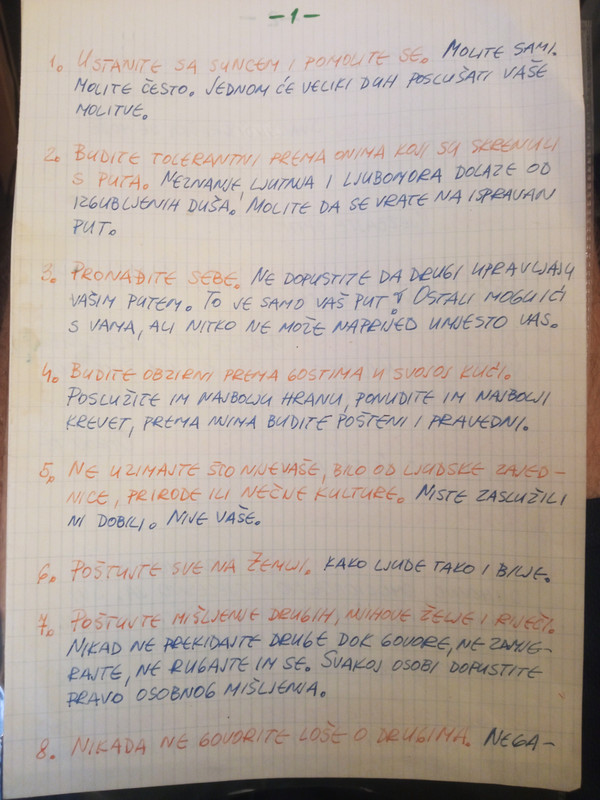 -1-
1. USTANITE SA SUNCEM I POMOLITE SE. MOLITE SAMI.
MOLITE ČESTO. JEDNOM ĆE VELIKI DUH POSLUŠATI VAŠE
MOLITVE.
2. BUDITE TOLERANTNI PREMA ONIMA KOJI SU SKRENULI
S PUTA. NEZNANJE LJUTNJA I LJUBOMORA DOLAZE OD
IZGUBLJENIH DUŠA. MOLITE DA SE VRATE NA ISPRAVAN
PUT.
3. PRONAĐITE SEBE. NE DOPUSTITE DA DRUGI UPRAVLJAJU
VAŠIM PUTEM. TO JE SAMO VAŠ PUT! OSTALI MOGU IĆI
S VAMA, ALI NITKO NE MOŽE NAPRIJED UMJESTO VAS.
4. BUDITE OBZIRNI PREMA GOSTIMA U SVOJOJ KUĆI.
POSLUŽITE IM NAJBOLJU HRANU, PONUDITE IM NAJBOLJI
KREVET, PREMA NJIMA BUDITE POŠTENI I PRAVEDNI.
5. NE UZIMAJTE ŠTO NIJE VAŠE, BILO OD LJUDSKE ZAJED-
NICE, PRIRODE ILI NEČIJE KULTURE. NISTE ZASLUŽILI
NI DOBILI. NIJE VAŠE.
6. POŠTUJTE SVE NA ZEMLJI. KAKO LJUDE TAKO I BILJE.
7. POŠTUJTE MIŠLJENJE DRUGIH, NJIHOVE ŽELJE I RIJEČI.
NIKAD NE PREKIDAJTE DRUGE DOK GOVORE, NE ZAMJE-
RAJTE, NE RUGAJTE IM SE. SVAKOJ OSOBI DOPUSTITE
PRAVO OSOBNOG MIŠLJENJA.
8. NIKADA NE GOVORITE LOŠE O DRUGIMA. NEGA-